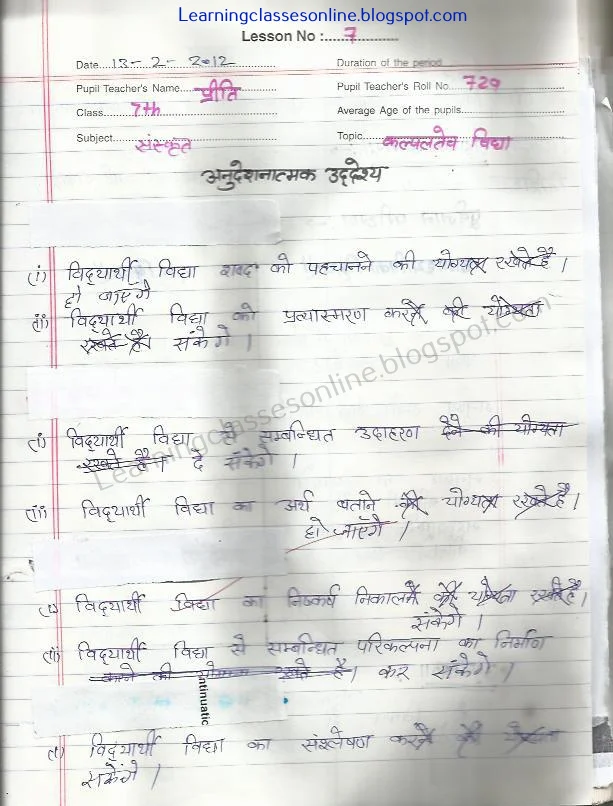 Learningclassesonline.blogspot.com
Lesson No :..... 7 ..........
Date.... 13-2-2012 Duration of the period
Pupil Teacher's Name.... प्रीति Pupil Teacher's Roll No... 729
Class.... 7th Average Age of the pupils
Subject.... संस्कृत Topic.... कल्पलतेव विद्या
अनुदेशनात्मक उद्देश्य
(i) विद्यार्थी विद्या शब्द को पहचानने की योग्यता रखते है ।
हो जाएंगे
(ii) विद्यार्थी विद्या को प्रत्यास्मरण करने की योग्यता
रखते है। सकेंगे ।
(i) विद्यार्थी विद्या से सम्बन्धित उदाहरण देने की योग्यता
रखते है। दे सकेंगे ।
(ii) विद्यार्थी विद्या का अर्थ बताने की योग्यता रखते है।
हो जाएँगे ।
(i) विद्यार्थी विद्या का निष्कर्ष निकालने की योग्यता रखते है।
सकेंगे ।
(ii) विद्यार्थी विद्या से सम्बन्धित परिकल्पना का निर्माण
रखते है। कर सकेंगे ।
ntinuatic
(i) विद्यार्थी विद्या का संश्लेषण करने की योग्यता
सकेंगे ।
Learningclassesonline.blogspot.com